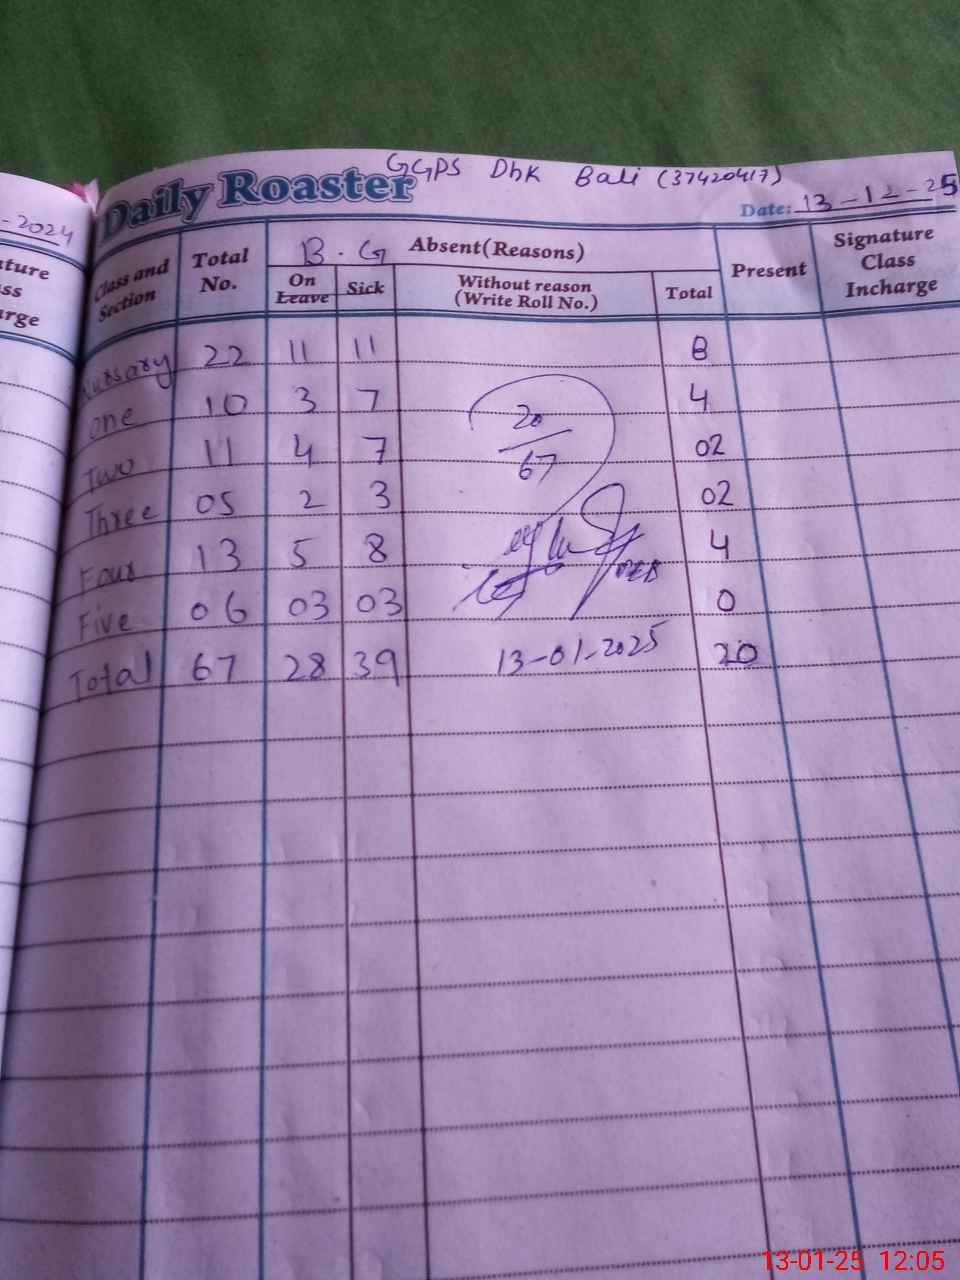 -2024
ture
ss
rge
GGPS Dhk Bali (37420417)
Daily Roaster
Date: 13-12-25
Class and Section Total No. B. G Absent(Reasons) Present Signature Class Incharge
On Leave Sick Without reason (Write Roll No.) Total
Nursary 22 11 11 8
One 10 3 7 4
20
Two 11 4 7 02
67
Three 05 2 3 02
Four 13 5 8 4
Five 06 03 03 0
Total 67 28 39 13-01-2025 20
13-01-25 12:05